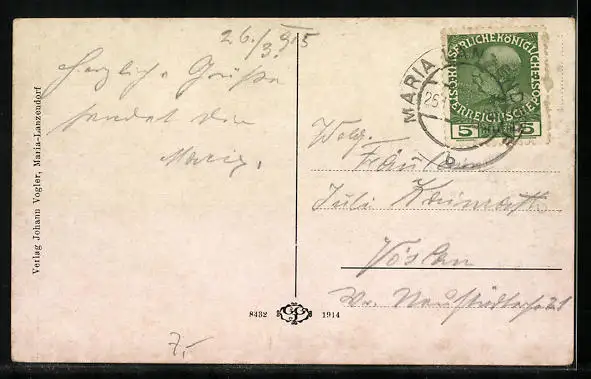 26./3. 915
Herzliche Grüße
sendet dir
Verlag Johann Vogler, Maria-Lanzendorf
KAISERLICHE KÖNIGLICHE
ÖSTERREICHISCHE POST
5 5
MARIA
b
Wolg.
Fräulein
Juli
Vöslau
Wr. Neustädterstr.
8432 1914
7,-